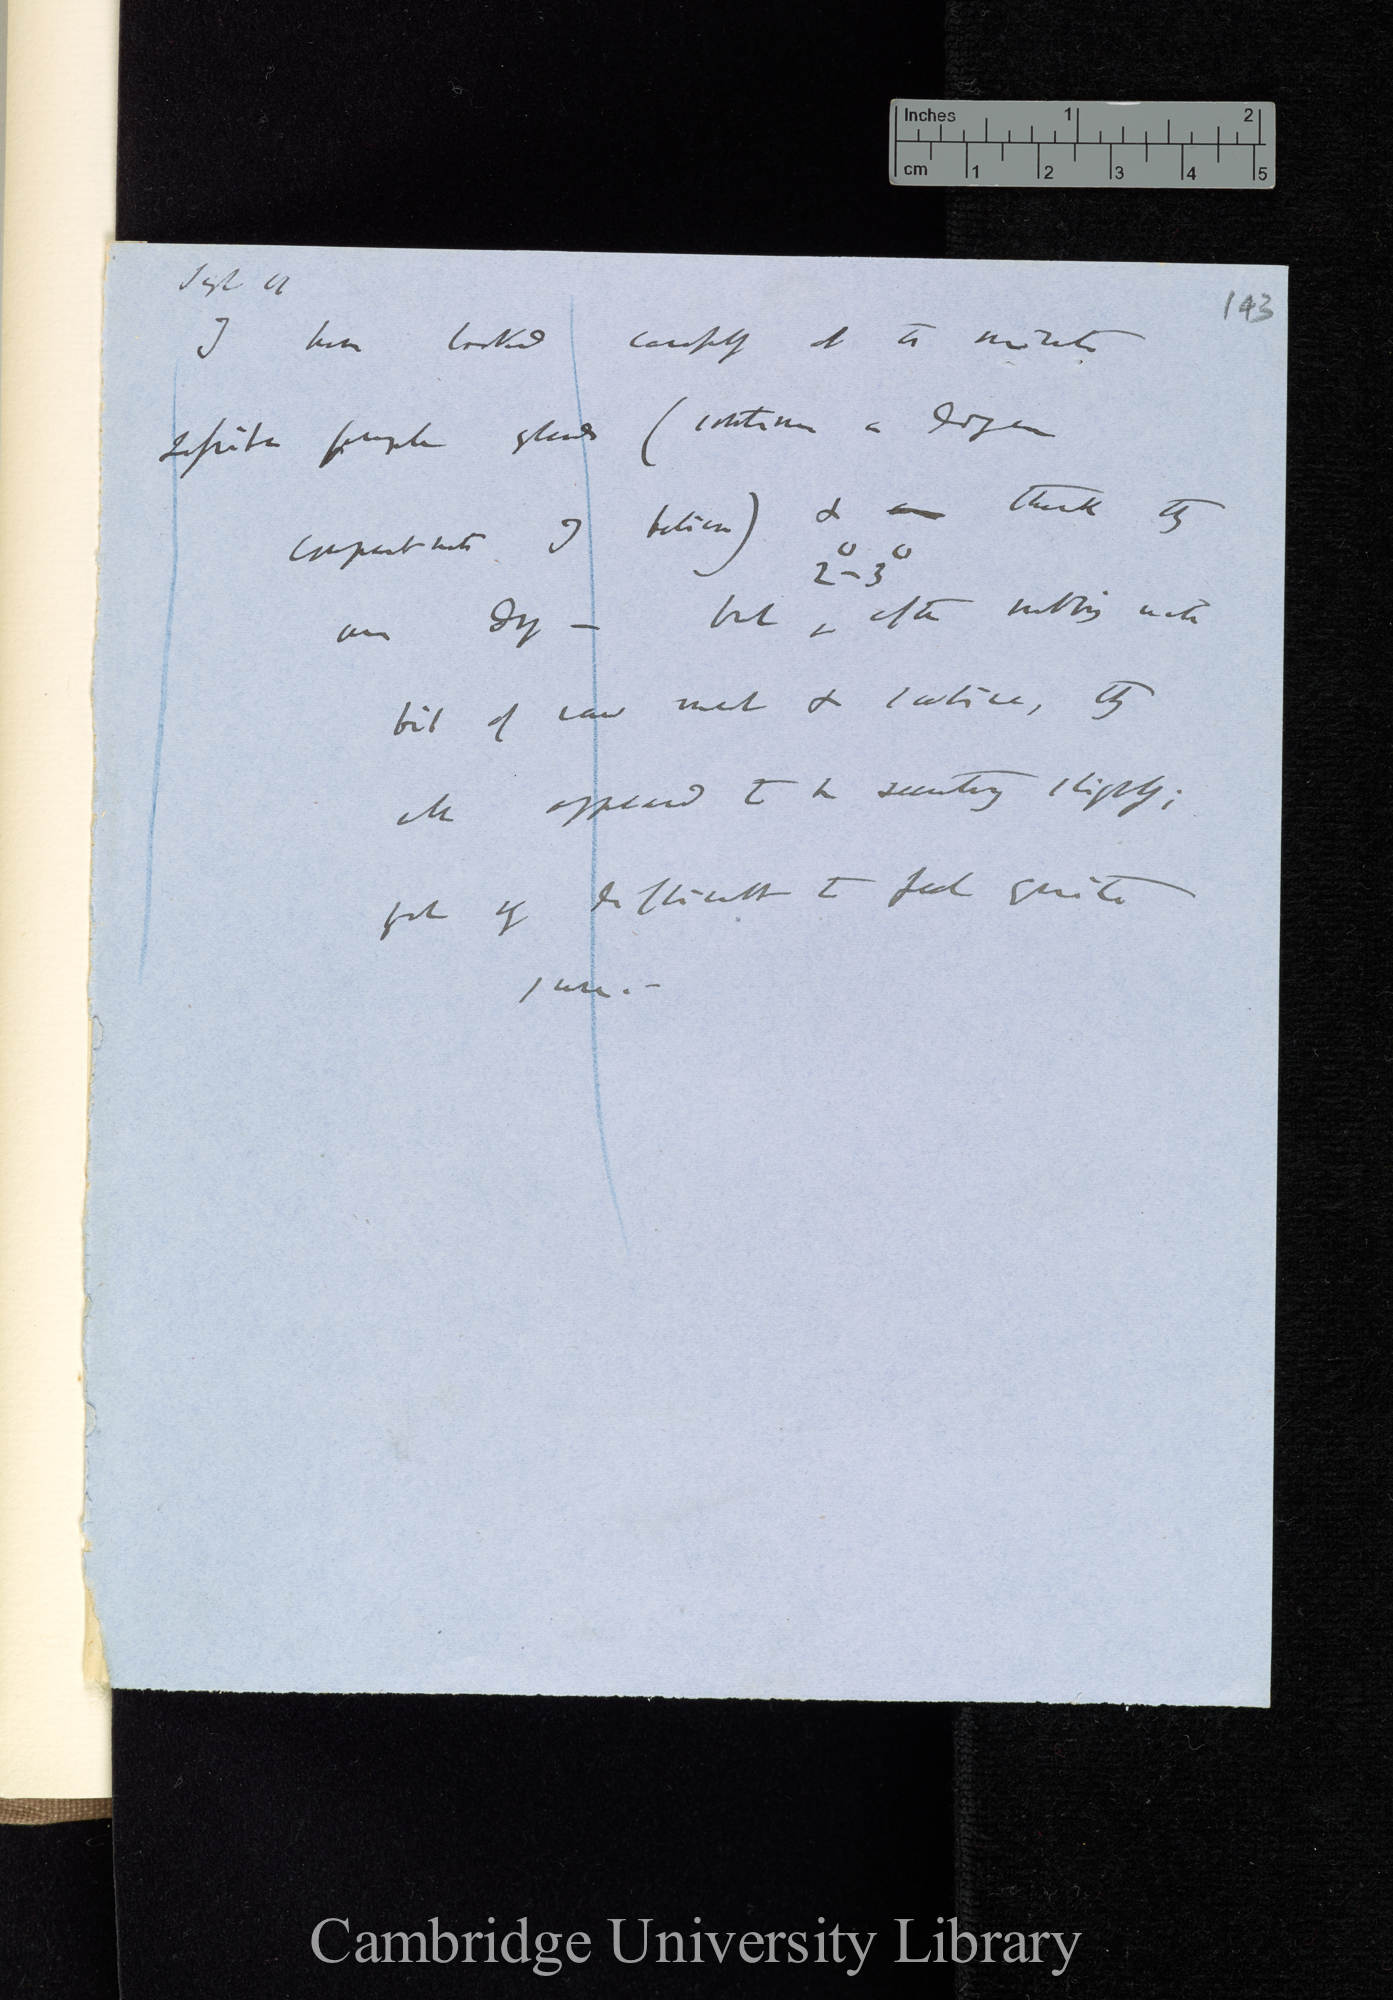 Inches 1 2
cm 1 2 3 4 5
143
Sept
I have looked carefully at the minute
purple glands (containing a dozen
compartments I believe) & think they
2° – 3°
are dry — but, after rubbing with
bit of raw meat & saliva, they
appeared to be secreting slightly;
but difficult to feel quite
sure. —
Cambridge University Library